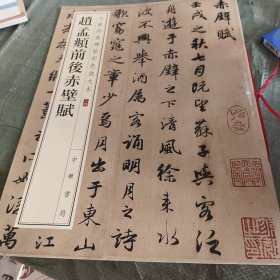 赤壁賦
壬戌之秋七月既望蘇子與客泛
舟遊于赤壁之下清風徐来水
波不興舉酒屬客誦明月之詩
歌窈窕之章少焉月出於東山
江
萬
中華經典碑帖彩色放大本
趙孟頫前後赤壁賦
中華書局